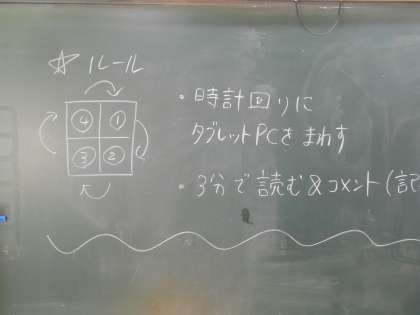 ☆ ルール
④ ①
③ ②
・時計回りに
タブレットPCをまわす
・3分で読む&コメント(記